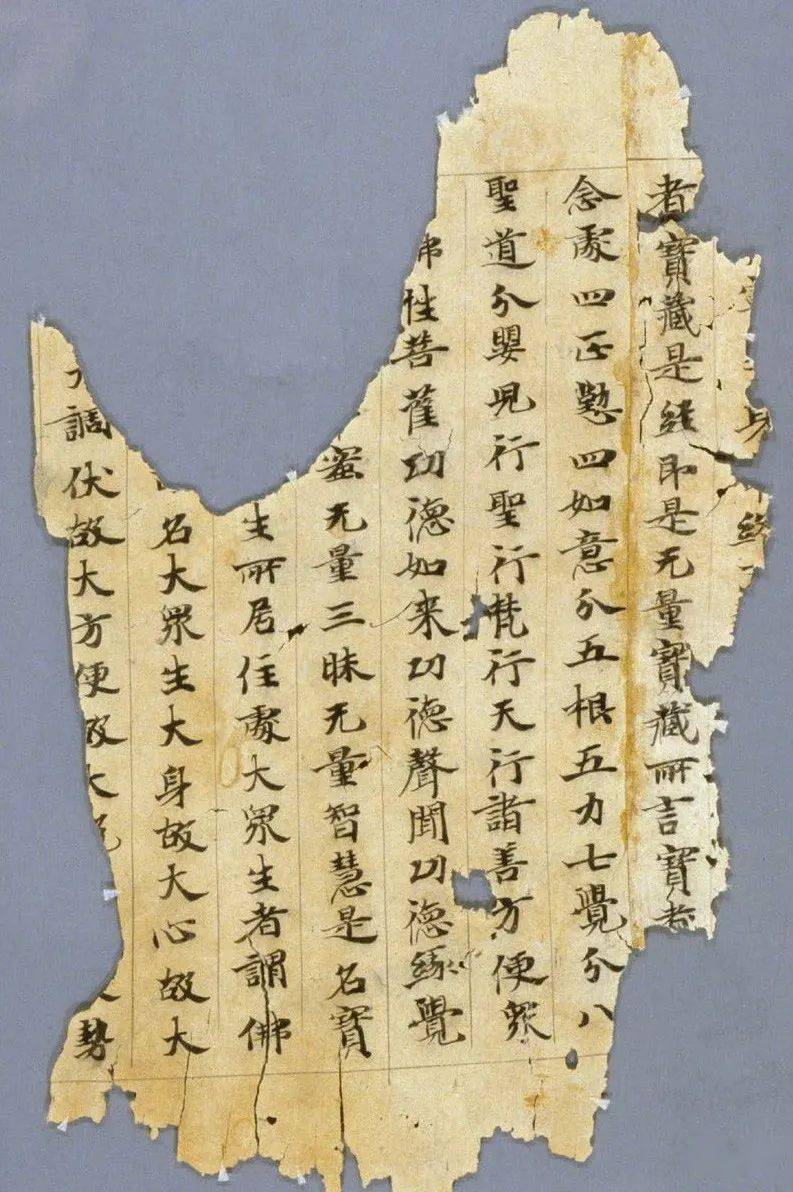 身
者寶藏是經即是无量寶藏所言寶者
念處四正懃四如意分五根五力七覺分八
聖道分嬰兒行聖行梵行天行諸善方便衆
佛性菩薩功德如来功德聲聞功德緣覺
蜜无量三昧无量智慧是名寶
生所居住處大衆生者謂佛
名大衆生大身故大心故大
調伏故大方便故大勢